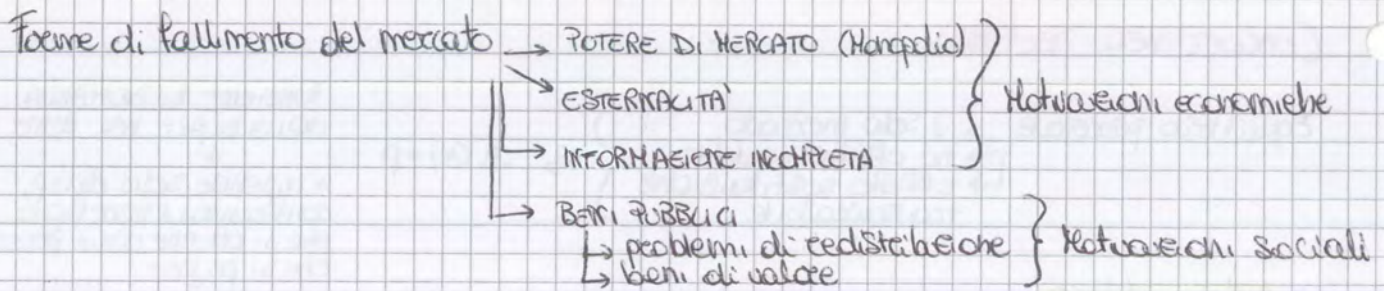 Forme di fallimento del mercato → POTERE DI MERCATO (Monopolio)
→ ESTERNALITA'
→ INFORMAZIONE INCOMPLETA
Motivazioni economiche
→ BENI PUBBLICI
↳ problemi di redistribuzione
↳ beni di valore
Motivazioni sociali